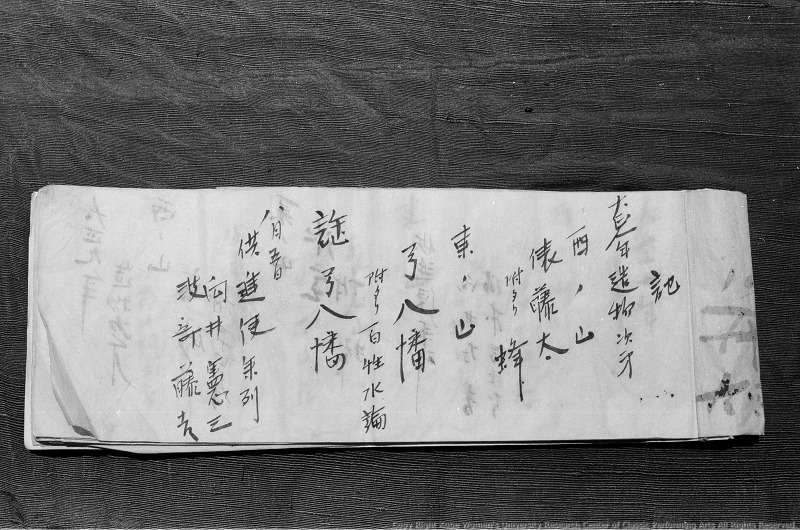 記
嘉年造物次才
西ノ山
俵藤太
附り 蜂
東ノ山
弓八幡
附り 百姓水論
謡 弓八幡
八月
供進使参列
向井憲三
藤吉
Copy Right Kobe Women's University Research Center of Classic Performing Arts All Rights Reserved